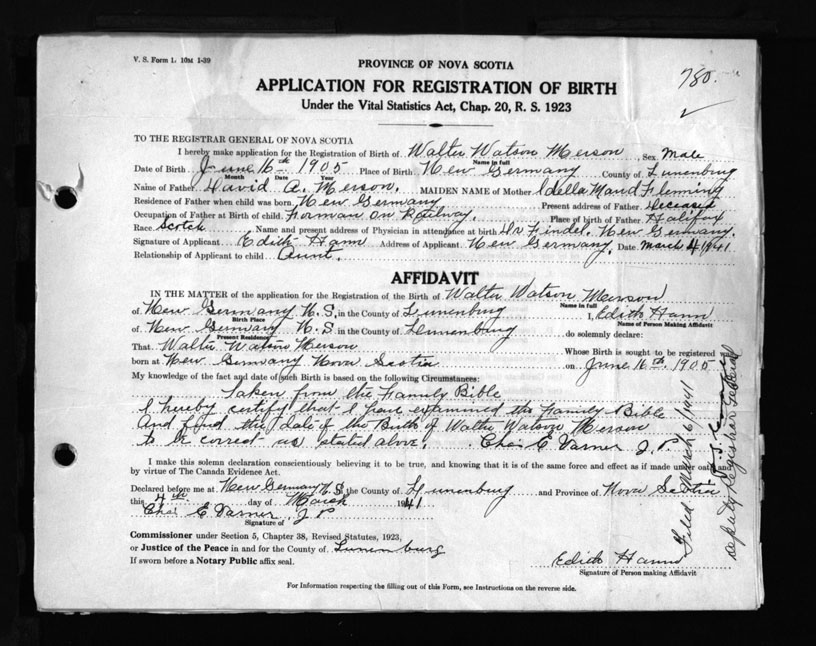 V. S. Form 1. 10M 1-39
PROVINCE OF NOVA SCOTIA
780.
APPLICATION FOR REGISTRATION OF BIRTH
Under the Vital Statistics Act, Chap. 20, R. S. 1923
TO THE REGISTRAR GENERAL OF NOVA SCOTIA
I hereby make application for the Registration of Birth of Walter Watson Merson Sex Male
Name in full
Date of Birth June 16th 1905 Place of Birth New Germany County of Lunenburg
Month Date Year
Name of Father David A. Merson. MAIDEN NAME of Mother Idella Maud Fleming
Residence of Father when child was born New Germany Present address of Father Deceased
Occupation of Father at Birth of child Forman on Railway. Place of birth of Father Halifax
Race Scotch Name and present address of Physician in attendance at birth Dr Findel. New Germany.
Signature of Applicant Edith Hann Address of Applicant New Germany. Date March 4 1941
Relationship of Applicant to child Aunt.
AFFIDAVIT
IN THE MATTER of the application for the Registration of the Birth of Walter Watson Merson
Name in full
of New Germany N.S. in the County of Lunenburg I, Edith Hann
Birth Place Name of Person Making Affidavit
of New Germany N.S. in the County of Lunenburg do solemnly declare:
Present Residence
That Walter Watson Merson Whose Birth is sought to be registered was
born at New Germany Nova Scotia on June 16th 1905
My knowledge of the fact and date of such Birth is based on the following Circumstances:
Taken from the Family Bible
I hereby certify that I have examined the Family Bible
And find the date of the Birth of Walter Watson Merson
to be correct as stated above. Chas. E. Varner J. P.
I make this solemn declaration conscientiously believing it to be true, and knowing that it is of the same force and effect as if made under oath and
by virtue of The Canada Evidence Act.
Declared before me at New Germany N.S. the County of Lunenburg and Province of Nova Scotia
this 4th day of March 1941
Chas E Varner J P
Signature of
Commissioner under Section 5, Chapter 38, Revised Statutes, 1923,
or Justice of the Peace in and for the County of Lunenburg
If sworn before a Notary Public affix seal.
Edith Hann
Signature of Person making Affidavit
For Information respecting the filling out of this Form, see Instructions on the reverse side.
Filed March 6/1941
Deputy Registrar General